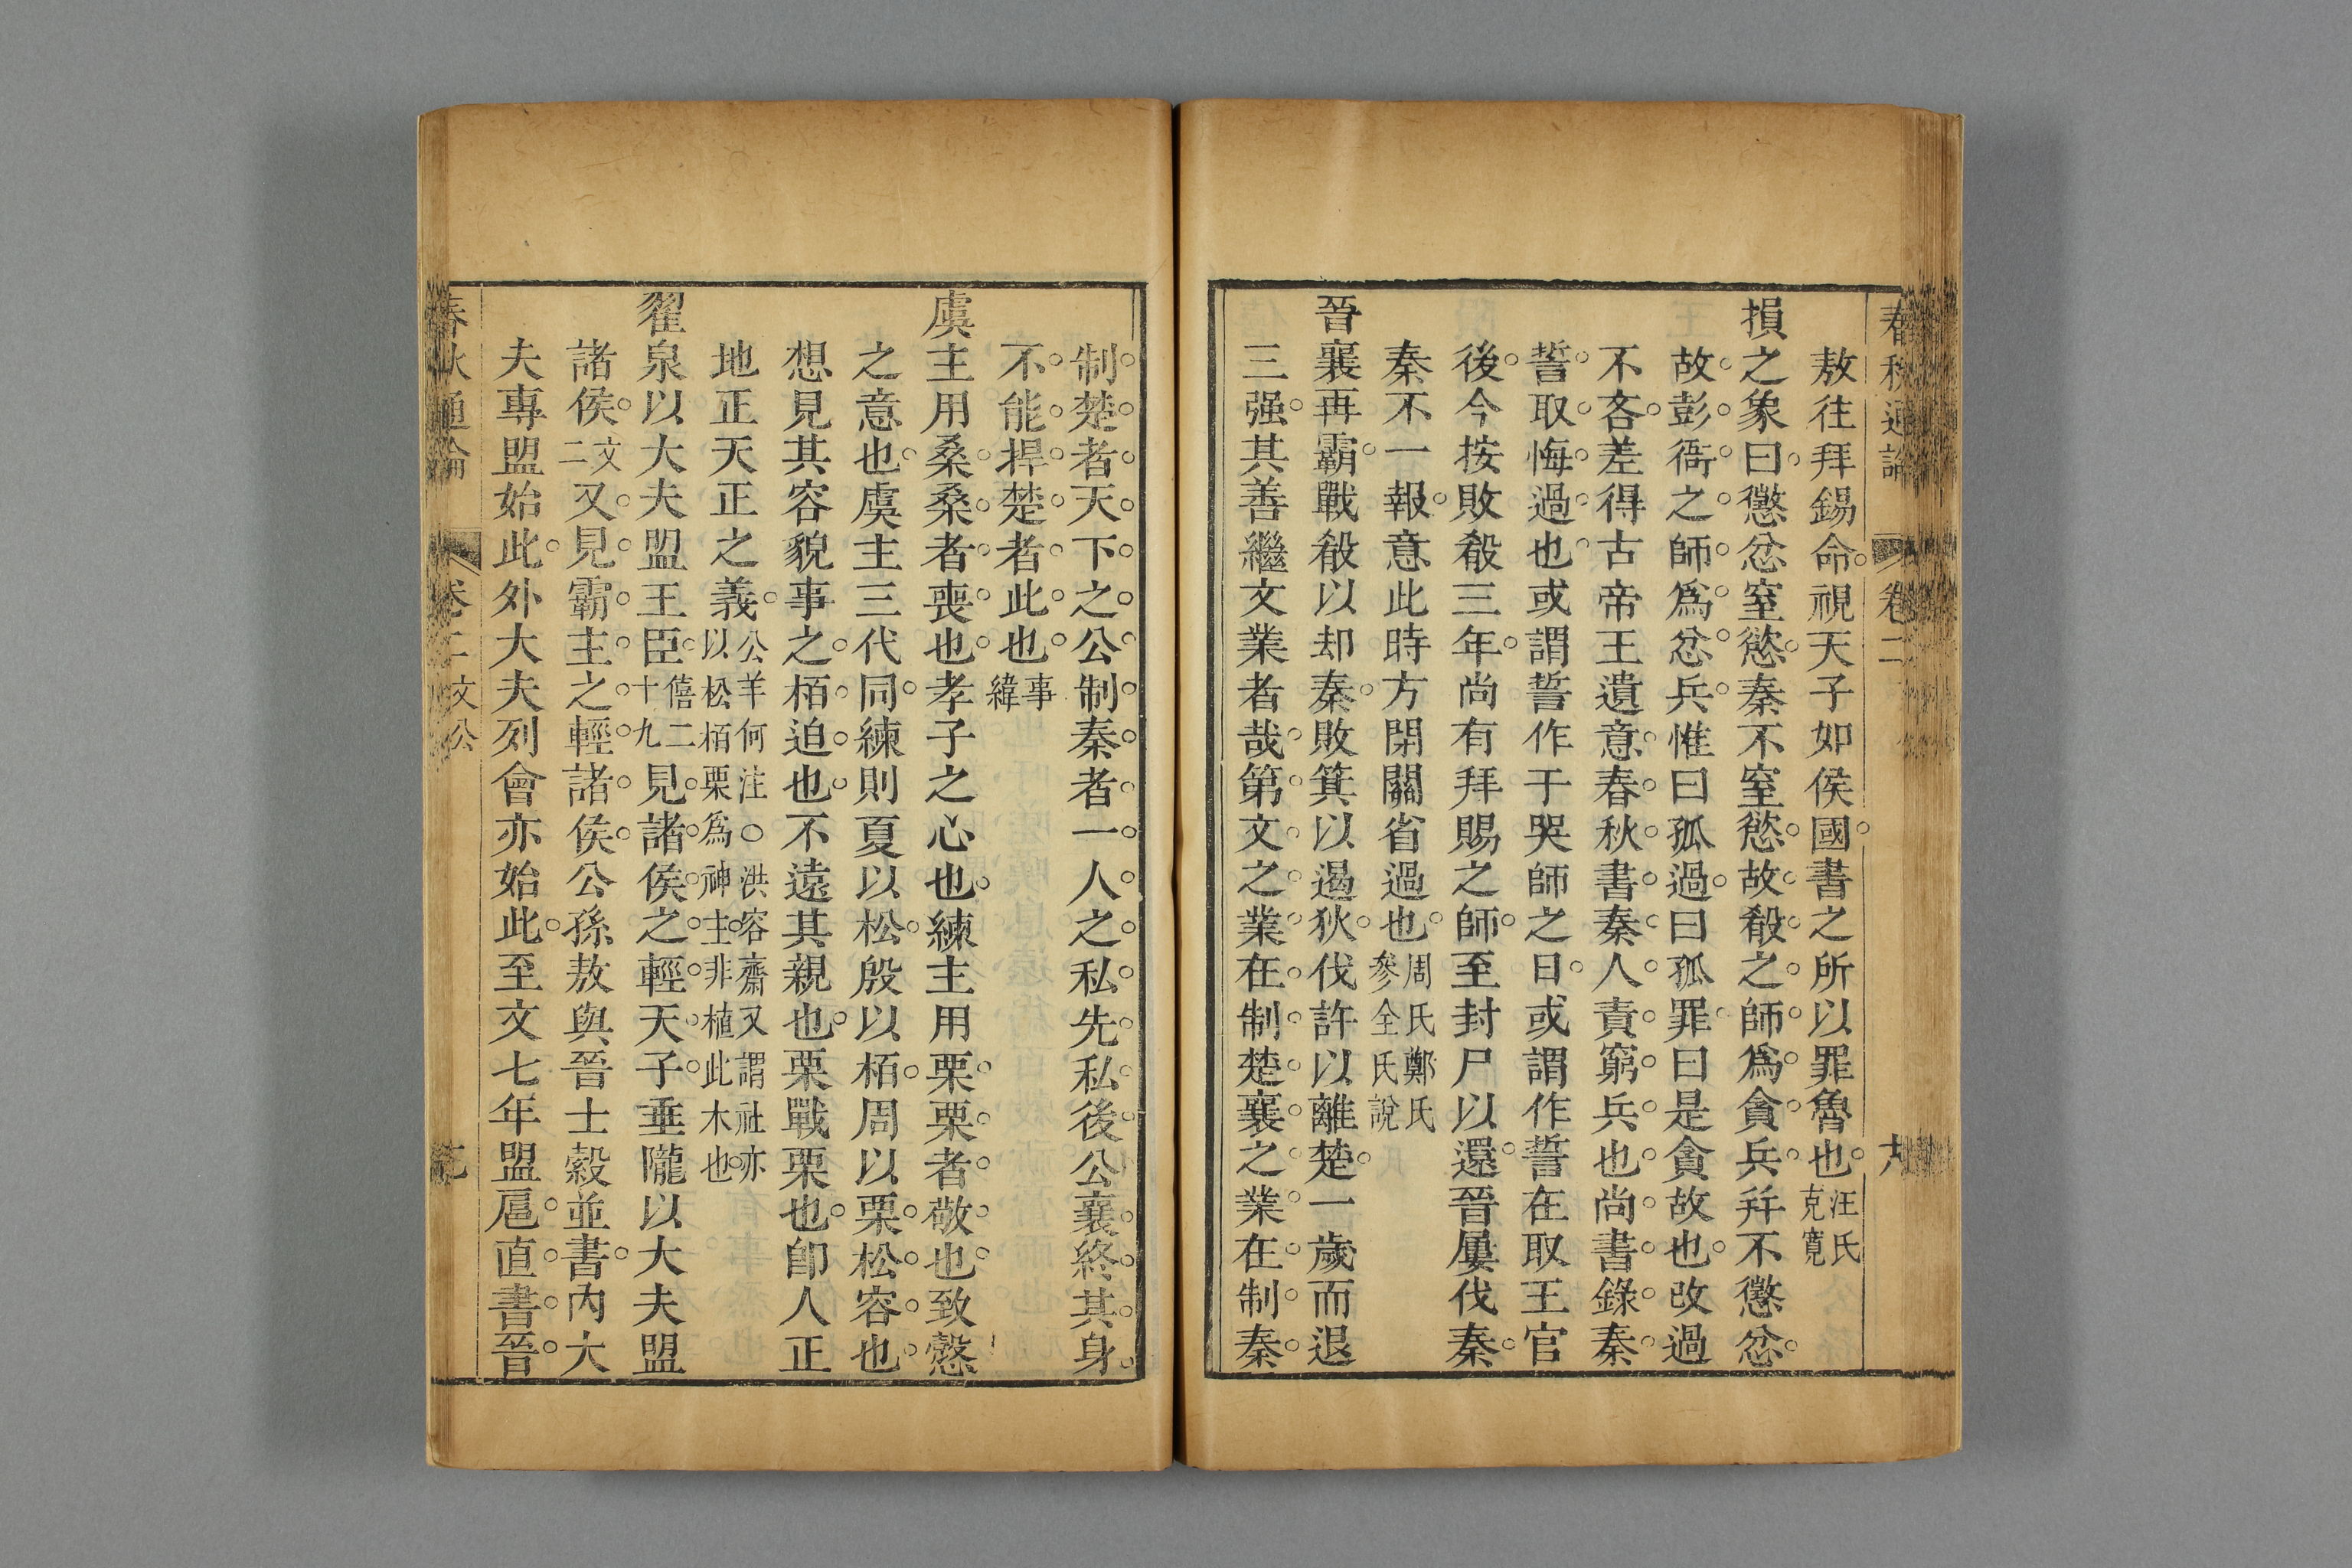 春秋通論 卷二 文公 十八
敖往拜錫命視天子如侯國書之所以罪魯也汪氏克寬
損之象曰懲忿窒慾秦不窒慾故殽之師為貪兵幷不懲忿
故彭衙之師為忿兵惟曰孤過曰孤罪曰是貪故也改過
不吝差得古帝王遺意春秋書秦人責窮兵也尚書錄秦
誓取悔過也或謂誓作于哭師之日或謂作誓在取王官
後今按敗殽三年尚有拜賜之師至封尸以還晉屢伐秦
秦不一報意此時方閉關省過也周氏鄭氏參全氏說
晉襄再霸戰殽以却秦敗箕以遏狄伐許以離楚一歲而退
三强其善繼文業者哉第文之業在制楚襄之業在制秦
制楚者天下之公制秦者一人之私先私後公襄終其身
不能捍楚者此也事緯
虞主用桑桑者喪也孝子之心也練主用栗栗者敬也致慤
之意也虞主三代同練則夏以松殷以栢周以栗松容也
想見其容貌事之栢迫也不遠其親也栗戰栗也卽人正
地正天正之義公羊何注○洪容齋又謂社亦以松栢栗為神主非植此木也
翟泉以大夫盟王臣僖二十九見諸侯之輕天子垂隴以大夫盟
諸侯文二又見霸主之輕諸侯公孫敖與晉士縠並書內大
夫專盟始此外大夫列會亦始此至文七年盟扈直書晉
春秋通論 卷二 文公